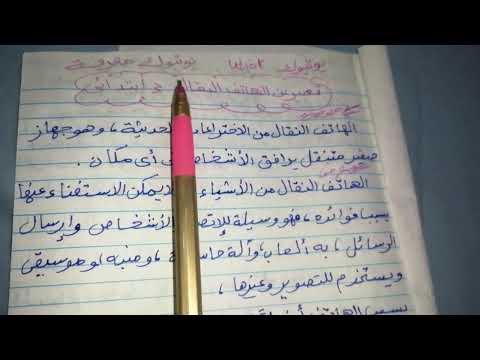 يوتيوب يوتيوب
تعبير عن الهاتف النقال ابتدائي
الهاتف النقال من الاختراعات الحديثة ، وهو جهاز
صغير متنقل يرافق الأشخاص في أي مكان .
الهاتف النقال من الأشياء لا يمكن الاستغناء عنها
بسبب فوائده ، فهو وسيلة للإتصال الأشخاص وإرسال
الرسائل ، به ألعاب ، وآلة حاسبة ، ومنبه ، وموسيقى
ويستخدم للتصوير وغيرها ،
الهاتف